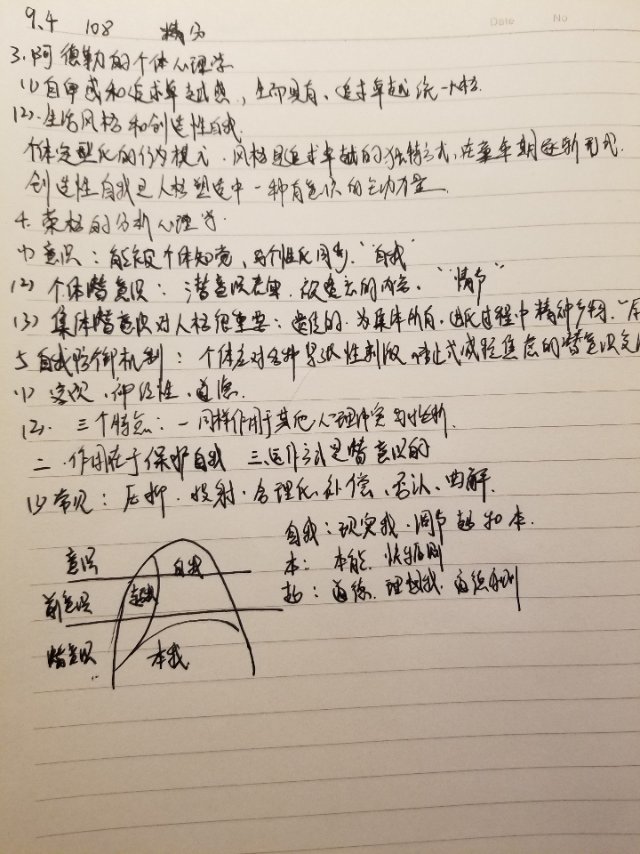 Date No
9.4 108 精分
3.阿德勒的个体心理学
(1)自卑感和追求卓越感,生而具有、追求卓越统一人格
(2).生活风格和创造性自我
个体定型化的行为模式.风格是追求卓越的独特方式,在童年期逐渐形成.
创造性自我是人格塑造中一种有意识的主动力量.
4.荣格的分析心理学.
(1)意识:能被个体知觉,与个性化同步."自我"
(2)个体潜意识:潜意识表
(3)集体潜意识对人格很重要:遗传的.为集体所有,进化过程中精神产物.
5自我防御机制:个体应对各种紧张性刺激,防止或减轻焦虑的潜意识
(1)实、神经性、道德.
(2).三个特点:一同样作用于其他人
二.作用在于保护自我 三运作方式是潜意识的
(3)常见:压抑.投射.合理化.补偿、否认、曲解.
自我:现实我.调节超和本.
本:本能.快乐原则
超:道德.理想我.道德原则
意识 自我
前意识 超我
潜意识 本我